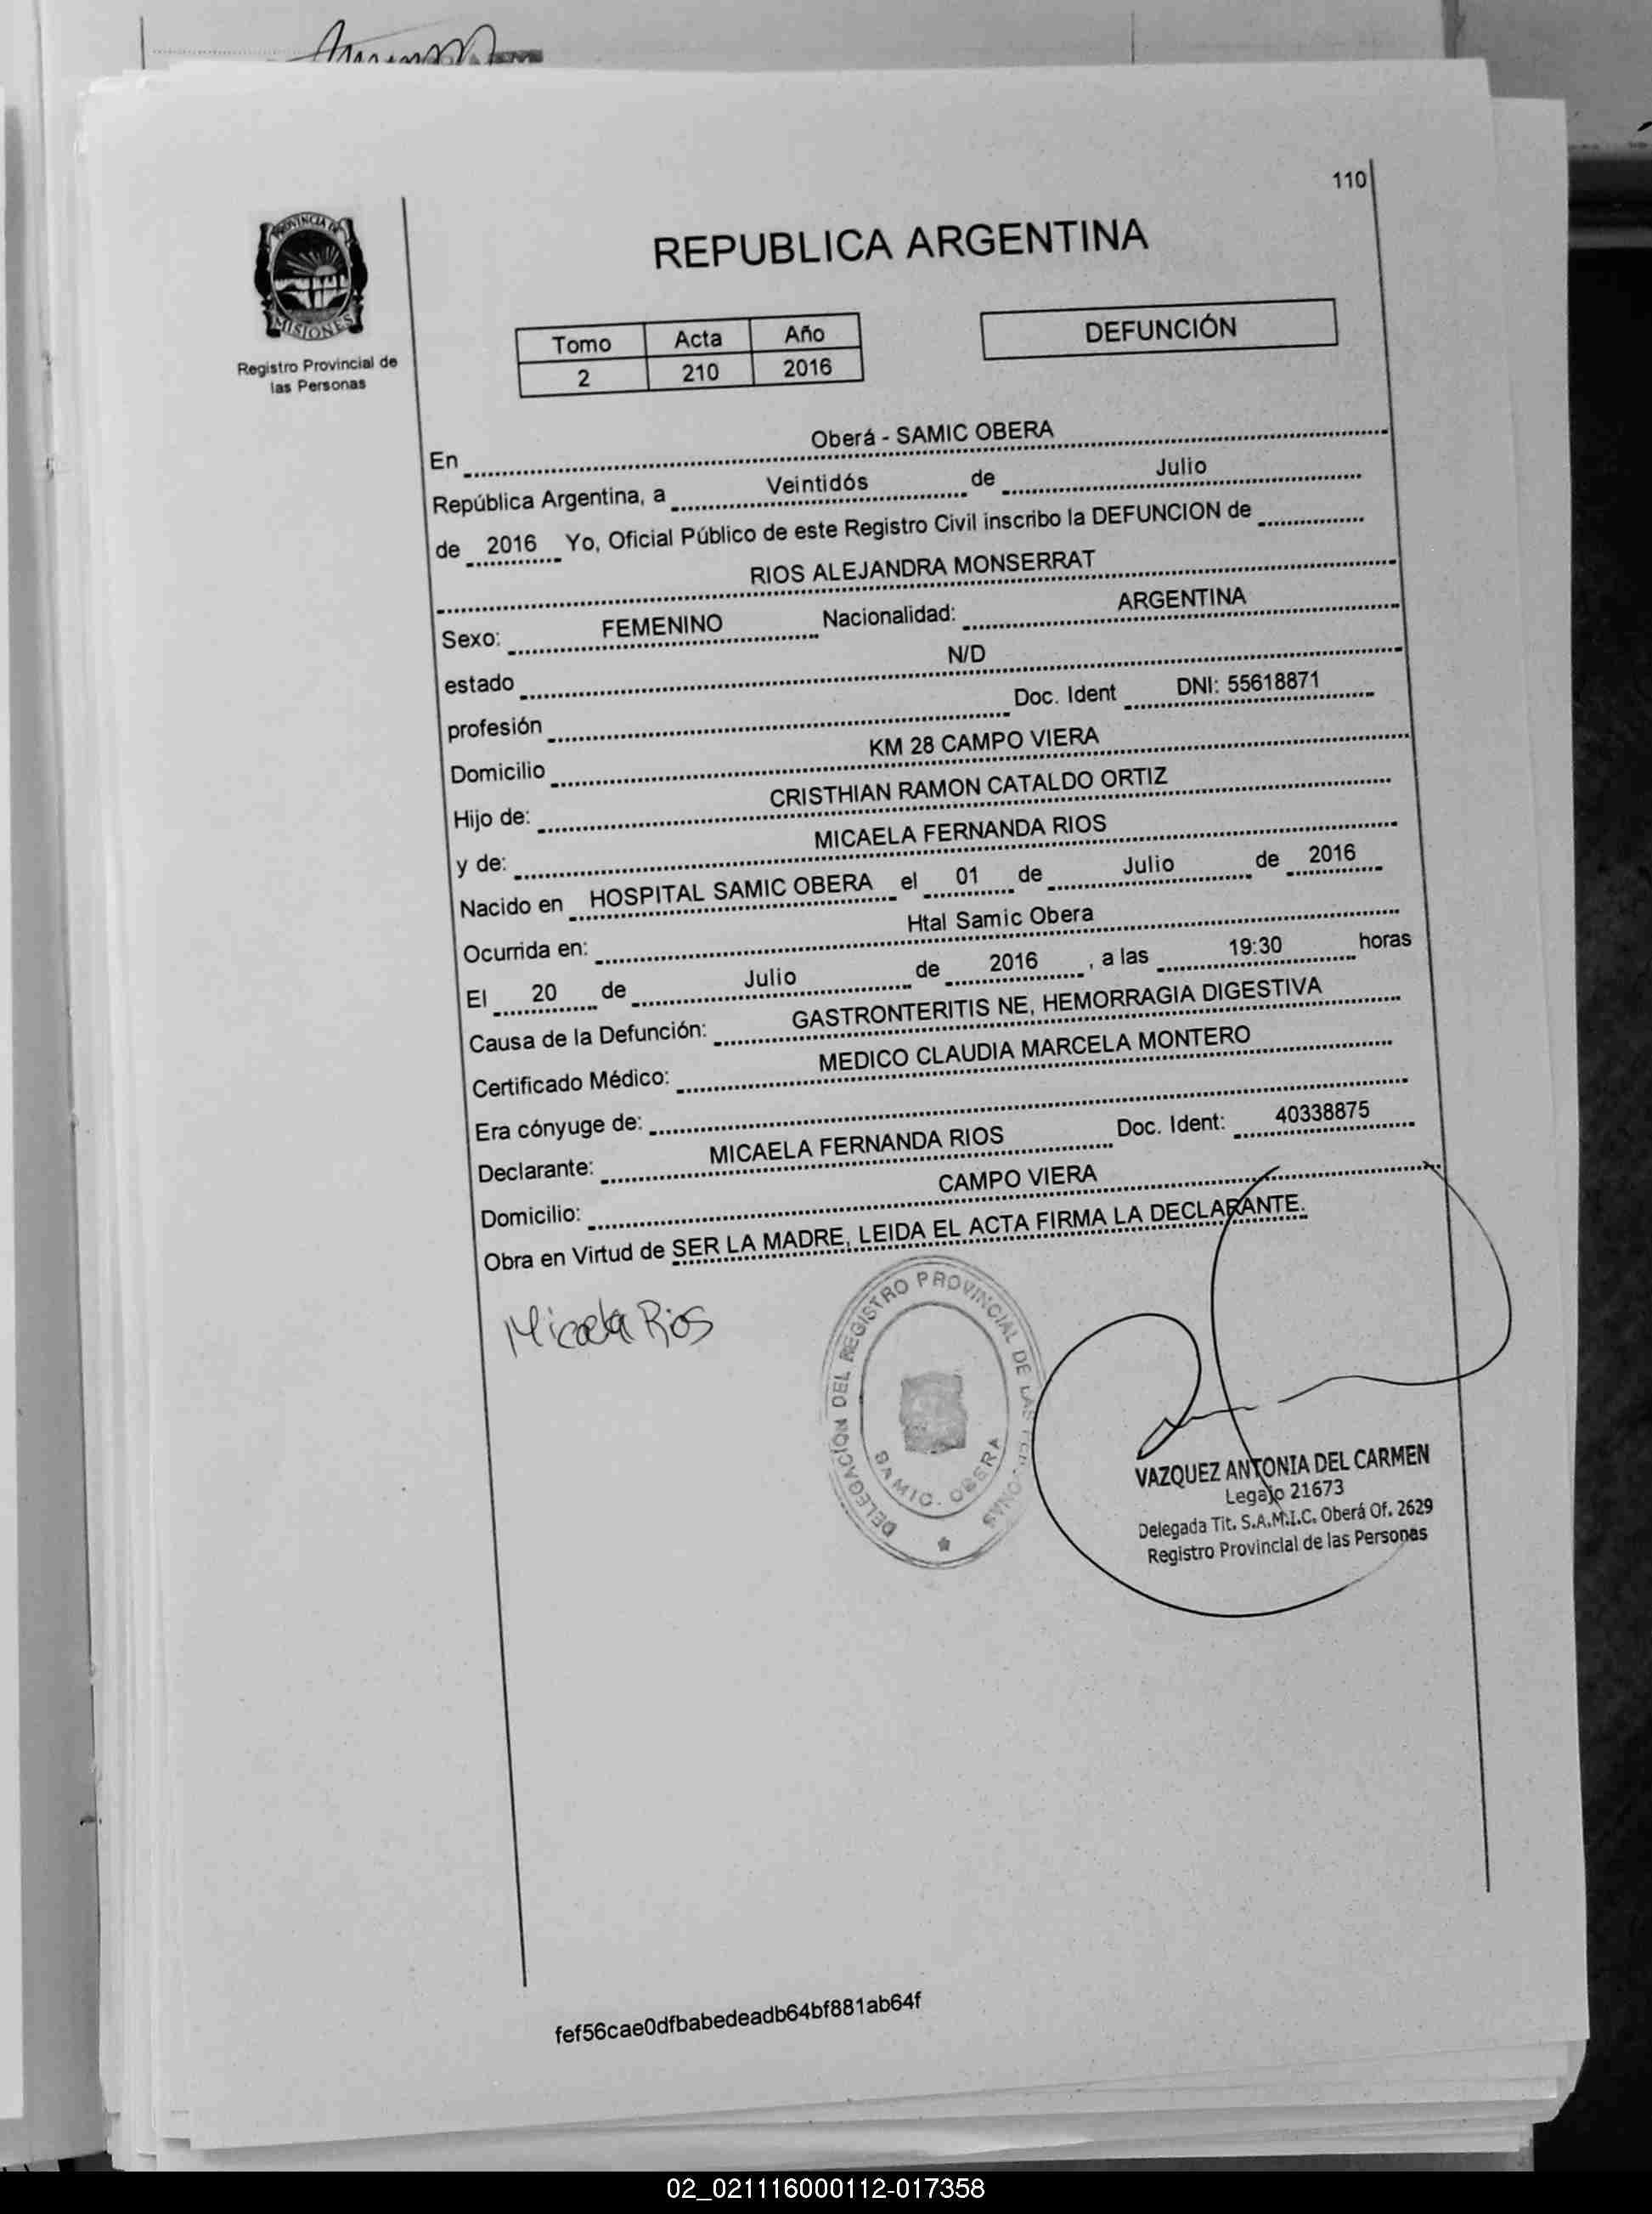 110
PROVINCIA DE
MISIONES
Registro Provincial de
las Personas
REPUBLICA ARGENTINA
Tomo Acta Año
2 210 2016
DEFUNCIÓN
En Oberá - SAMIC OBERA
República Argentina, a Veintidós de Julio
de 2016 Yo, Oficial Público de este Registro Civil inscribo la DEFUNCION de
RIOS ALEJANDRA MONSERRAT
Sexo: FEMENINO Nacionalidad: ARGENTINA
estado N/D
profesión Doc. Ident DNI: 55618871
Domicilio KM 28 CAMPO VIERA
Hijo de: CRISTHIAN RAMON CATALDO ORTIZ
y de: MICAELA FERNANDA RIOS
Nacido en HOSPITAL SAMIC OBERA el 01 de Julio de 2016
Ocurrida en: Htal Samic Obera
El 20 de Julio de 2016 , a las 19:30 horas
Causa de la Defunción: GASTRONTERITIS NE, HEMORRAGIA DIGESTIVA
Certificado Médico: MEDICO CLAUDIA MARCELA MONTERO
Era cónyuge de:
Declarante: MICAELA FERNANDA RIOS Doc. Ident: 40338875
Domicilio: CAMPO VIERA
Obra en Virtud de SER LA MADRE, LEIDA EL ACTA FIRMA LA DECLARANTE.
Micaela Rios
DELEGACIÓN DEL REGISTRO PROVINCIAL DE LAS
SAMIC. OBERA
VAZQUEZ ANTONIA DEL CARMEN
Legajo 21673
Delegada Tit. S.A.M.I.C. Oberá Of. 2629
Registro Provincial de las Personas
fef56cae0dfbabedeadb64bf881ab64f
02_021116000112-017358